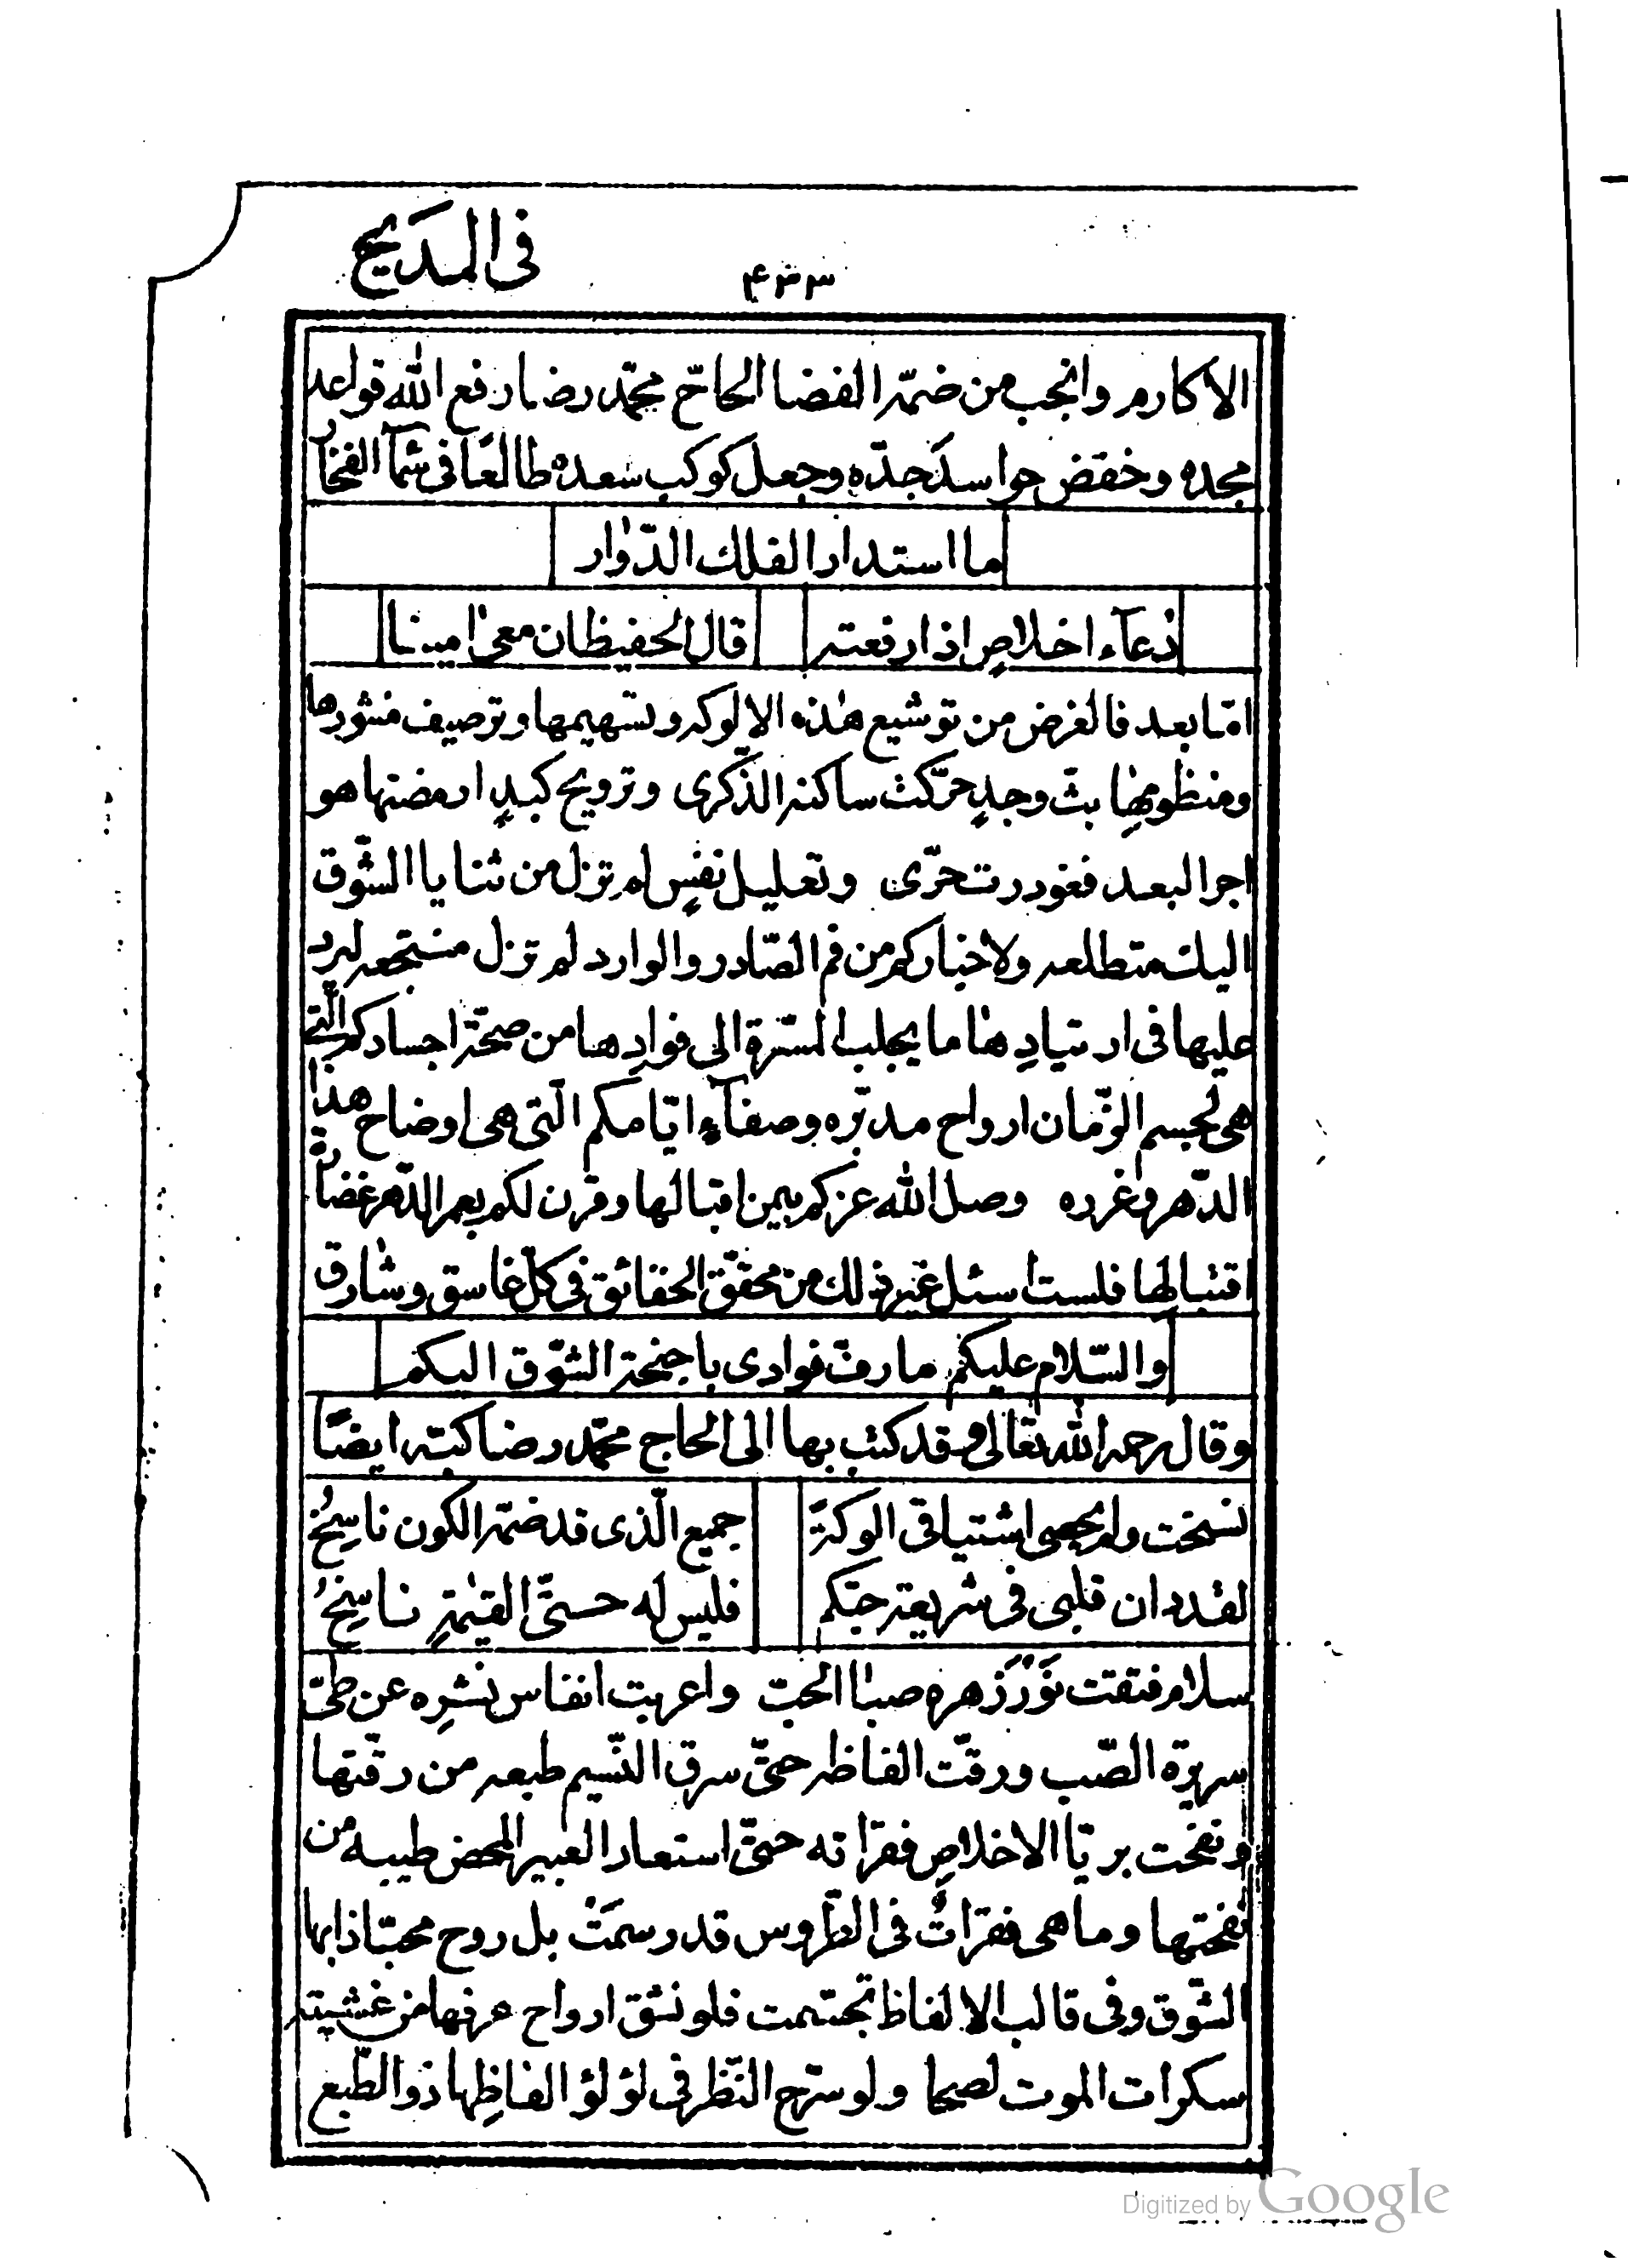 فى المديح
٤٣٣
الاكارم وانجب من ضمّه الفضا الحاجّ محمّد رضا رفع الله قواعد
مجده وخفض حواسد جدّه وجعل كوكب سعده طالعًا فى سمآ الفخار
ما استدار الفلك الدّوار
دعآء اخلاصٍ اذا رفعته
قال الحفيظان معى امينا
امّا بعد فالغرض من توشيع هذه الالوكه وتسهيمها وترصيف منثورها
ومنظومها بثّ وجدٍ حرّكت ساكنه الذّكرى وترويح كبدٍ ارمضتها هو
اجر البعد فغودرت حرّى وتعليل نفسٍ لم تزل من ثنايا الشّوق
اليك متطلعه ولاخباركم من فم الصّادر والوارد لم تزل منتجعه ليرد
عليها فى ارتيادها ما يجلب المسّرة الى فوادها من صحّة اجسادكم الّتى
هى لجسم الزّمان ارواح مدبّره وصفآء ايّامكم الّتى هى اوضاح هذا
الدّهر وغرره وصل الله عزكم بيمن اقبالها وقرن لكم بعمر الدّهر غضارة
اقتبالها فلست اسئل غير ذلك من محقّق الحقائق فى كلّ غاسق وشارق
والسّلام عليكم ما رفّ فوادى باجنحة الشّوق اليكم
وقال رحمه الله تعالى وقد كتب بها الى الحاج محمّد رضا كبّه ايضًا
نسخت ولم يحص اشتياقى الوكةً
جميع الّذى قد ضمّه الكون ناسِخُ
لقد دان قلبى فى شريعة حبّكم
فليس له حتّى القيٰمةِ ناسِخُ
سلام فتقت نَوْرَ زهره صبا الحبّ واعربت انفاس نشرِه عن طىّ
سريرة الصّب ورقّت الفاظه حتّى سرق النّسيم طبعه من رقّتها
ونفحت بريّا الاخلاصِ فقراته حتّى استعار العبير المحض طيبه من
نفحتها وما هى فقراتٌ فى الطّروس قد رسمَتْ بل روح محبّ اذابها
الشّوق وفى قالب الالفاظ تجسّمت فلو نشق ارواح عرفها من غشيته
سكرات الموت لصحا ولو سرّح النّظر فى لؤلؤ الفاظِها ذو الطّبع
Digitized by Google